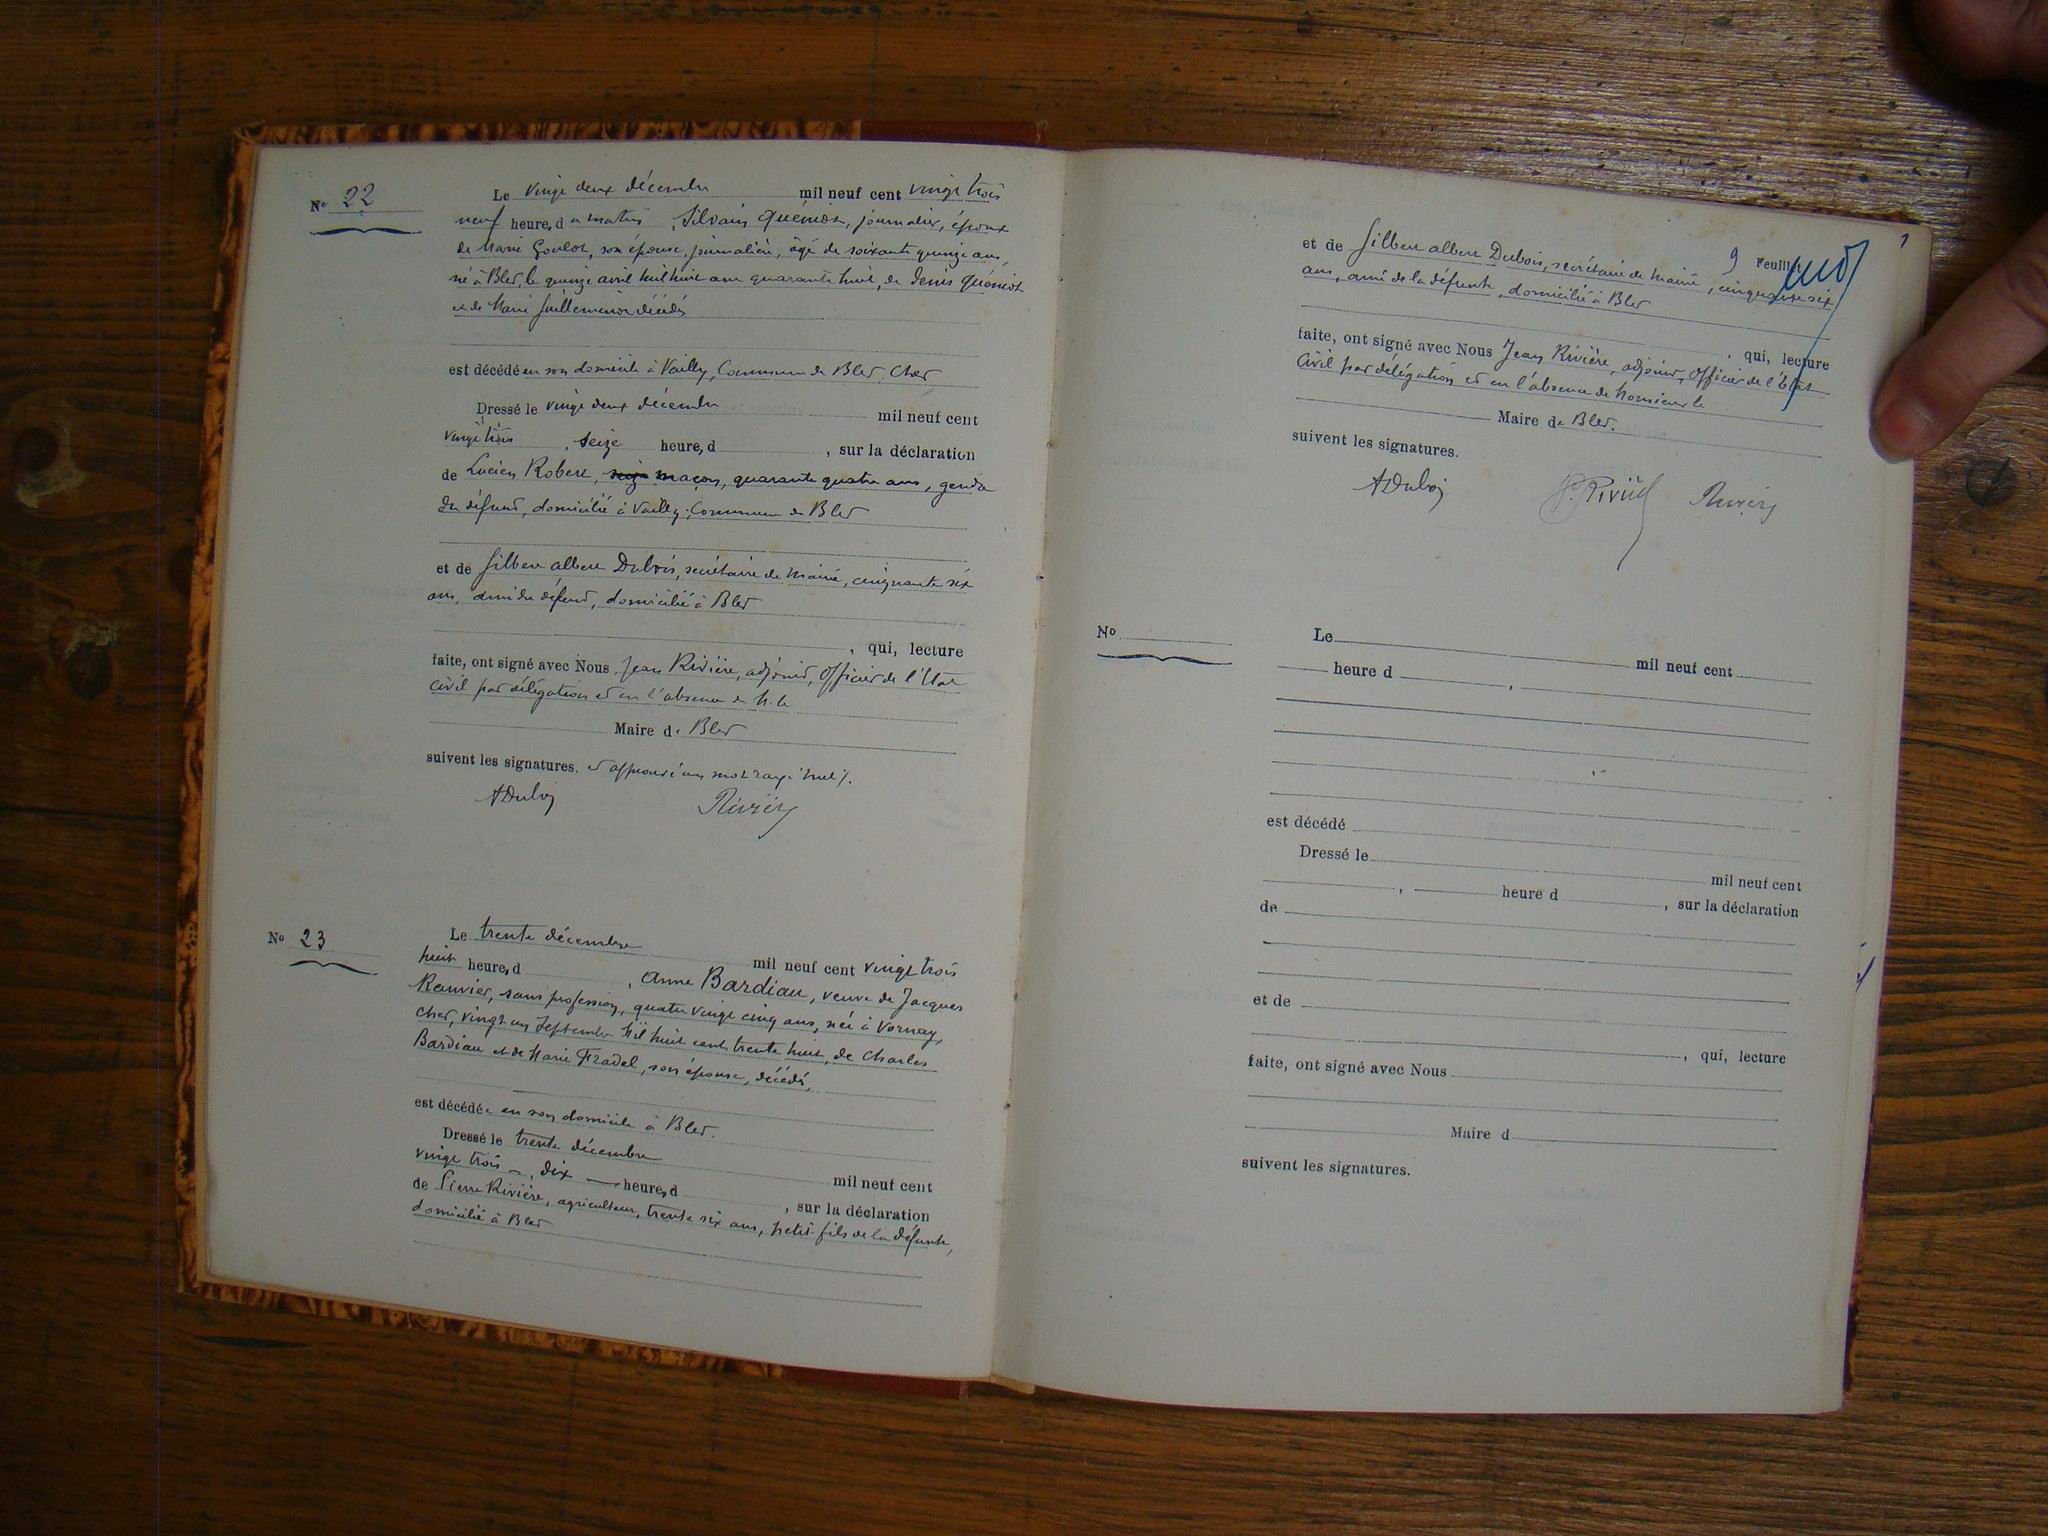 No 22
Le vingt deux décembre mil neuf cent vingt trois
neuf heure, d u matin, Silvain Quéniot, journalier, époux
de Marie Goulot, son épouse, journalière, âgé de soixante quinze ans,
né à Blet, le quinze avril mil huit cent quarante huit, de Denis Quéniot
et de Marie Guilleminot décédés
est décédé en son domicile à Vailly, Commune de Blet. Cher
Dressé le vingt deux décembre mil neuf cent
vingt trois, seize heure, d , sur la déclaration
de Lucien Robert, maçon, quarante quatre ans, gendre
du défunt, domicilié à Vailly, Commune de Blet
et de Gilbert albert Dubois, secrétaire de Mairie, cinquante six
ans, ami du défunt, domicilié à Blet
, qui, lecture
faite, ont signé avec Nous Jean Rivière, adjoint, Officier de l'Etat
Civil par délégation et en l'absence de M. le
Maire de Blet
suivent les signatures. et approuvé un mot rayé nul ;.
ADuboi Rivière
No 23
Le trente décembre mil neuf cent vingt trois
huit heure, d , Anne Bardiau, veuve de Jacques
Ranvier, sans profession, quatre vingt cinq ans, née à Vornay,
Cher, vingt un Septembre Mil huit cent trente huit, de Charles
Bardiau et de Marie Fradel, son épouse, décédés,
est décédée en son domicile à Blet.
Dressé le trente décembre mil neuf cent
vingt trois, dix heure, d , sur la déclaration
de Pierre Rivière, agriculteur, trente six ans, petit-fils de la défunte,
domicilié à Blet
9 Feuillet
et de Gilbert albert Dubois, secrétaire de Mairie, cinquante six
ans, ami de la défunte, domicilié à Blet
, qui, lecture
faite, ont signé avec Nous Jean Rivière, adjoint, Officier de l'Etat
Civil par délégation et en l'absence de Monsieur le
Maire de Blet.
suivent les signatures.
ADuboi P. Rivière Rivière
No
Le mil neuf cent
heure d ,
est décédé
Dressé le mil neuf cent
, heure d , sur la déclaration
de
et de
, qui, lecture
faite, ont signé avec Nous
Maire d
suivent les signatures.